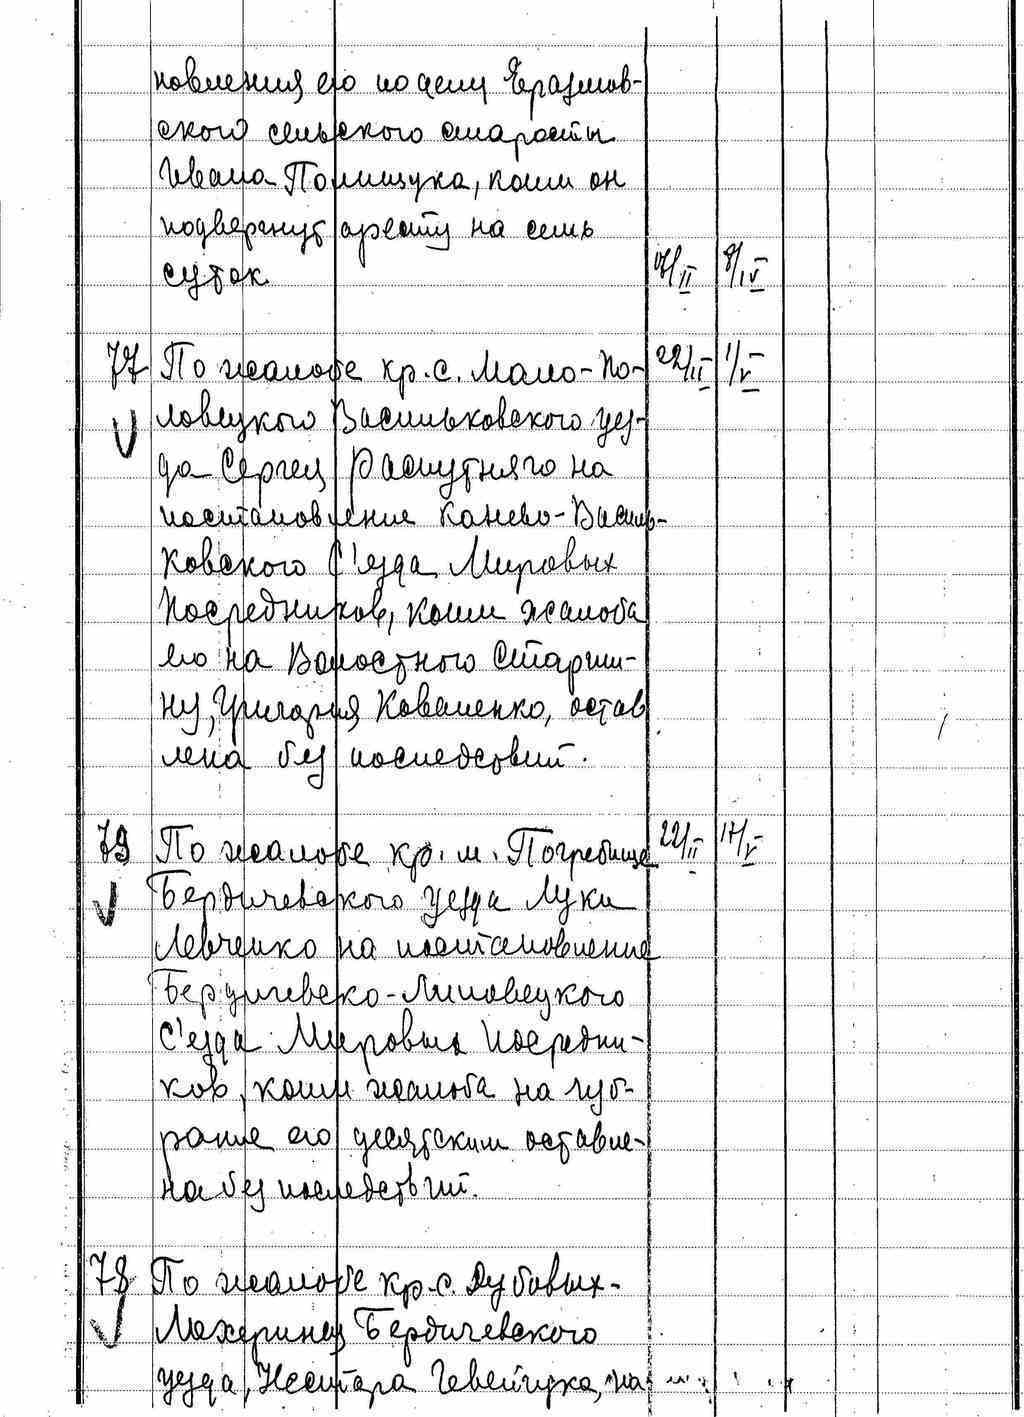 новления его по делу Еразмов-
ского сельского старосты
Ивана Полищука, коим он
подвергнут аресту на семь
суток. 8/IV
77 По жалобе кр. с. Мало-По- 22/II 1/V
ловецкого Васильковского уез-
да Сергея Распутняго на
постановление Канево-Василь-
ковского С'езда Мировых
Посредников, коим жалоба
его на Волостного Старши-
ну, Григория Коваленко, остав
лена без последствий.
79 По жалобе кр. м. Погребище 22/II 17/V
Бердичевского уезда Луки
Левченко на постановление
Бердичевско-Липовецкого
С'езда Мировых Посредни-
ков, коим жалоба на
его десятским оставле-
на без последствий.
78 По жалобе кр. с. Дубовых-
Махеринец Бердичевского
уезда, Нестора на